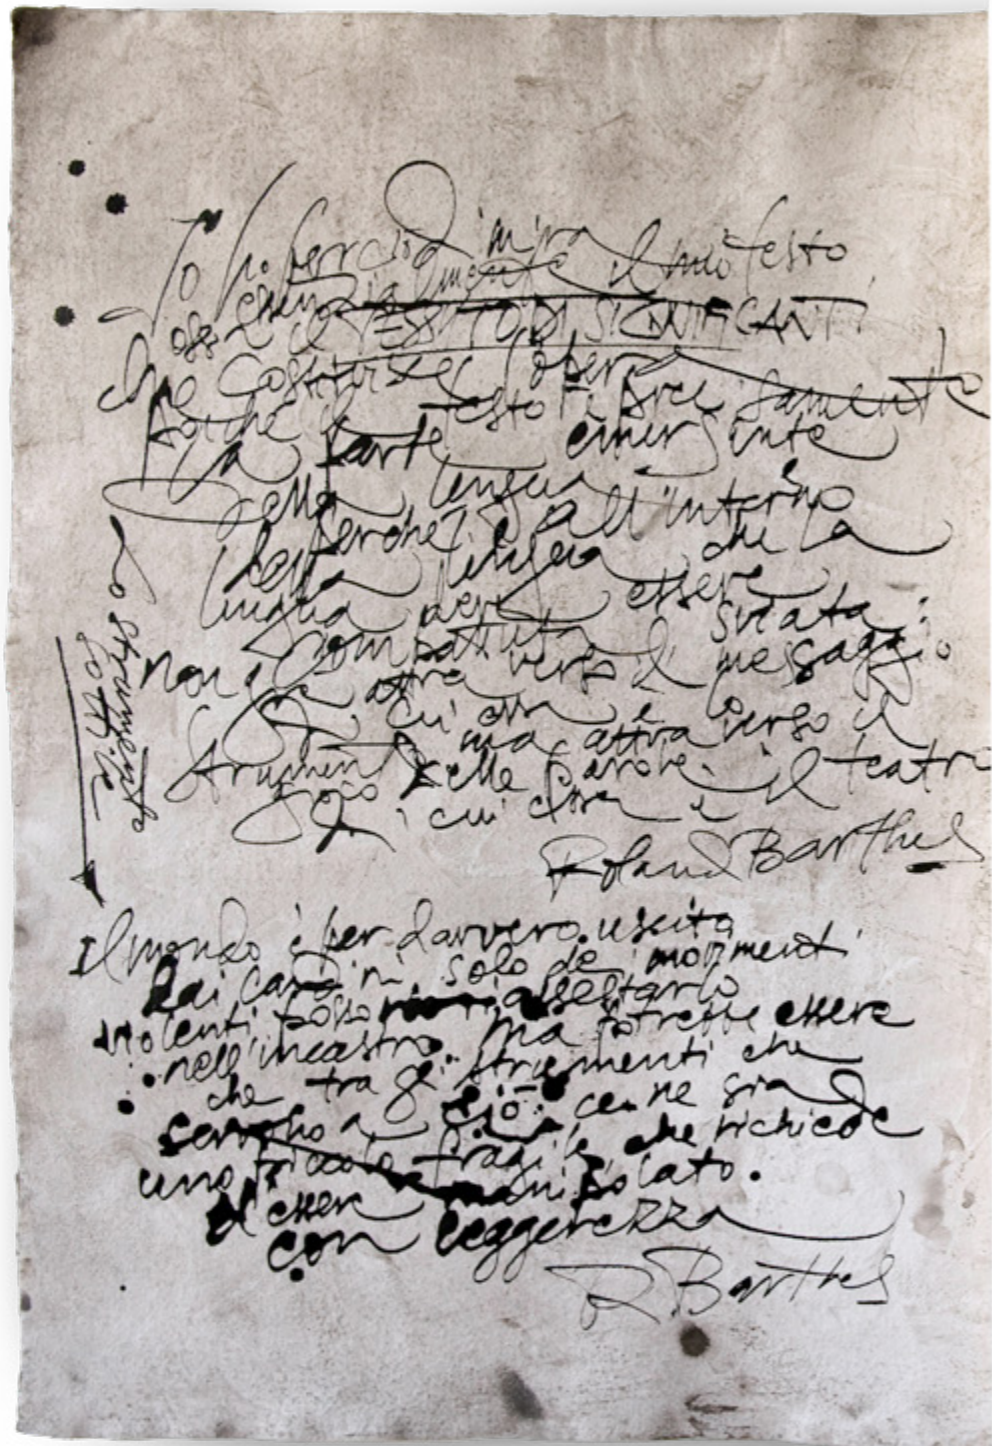 Io ho perciò in mira il mio testo
essenzialmente
ossia il TESSUTO DI SIGNIFICANTI
che costituisce l'opera
poiché il testo è precisamente
la parte emergente
della lingua
perché è all'interno
della lingua che la
lingua essere
combattuta sviata:
non attraverso il messaggio
di cui essa è
strumento ma attraverso il
gioco delle parole il teatro
di cui essa è
Roland Barthes
lo strumento
Il mondo è per davvero uscito
dai cardini, solo dei movimenti
violenti possono riassestarlo
nell'incastro. Ma potrebbe essere
che tra gli strumenti che
servono a ciò, ce ne sia
uno piccolo fragile che richiede
d'essere manipolato.
con leggerezza
R Barthes